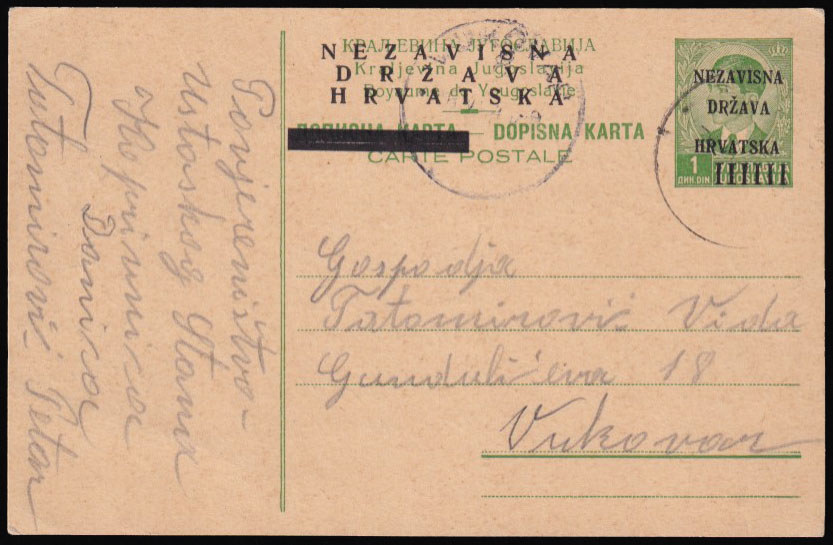 КРАЉЕВИНА ЈУГОСЛАВИЈА
NEZAVISNA
Kraljevina Jugoslavija
DRŽAVA
Royaume de Yougoslavie
HRVATSKA
ДОПИСНА КАРТА — DOPISNA KARTA
CARTE POSTALE
NEZAVISNA
DRŽAVA
HRVATSKA
1
ДИН. DIN
Gospodja
Tatomirović Vida
Gundulićeva 18
Vukovar
Povjereništvo-
Ustaskog Stana
Koprivnica
Danica
Tatomirović Petar